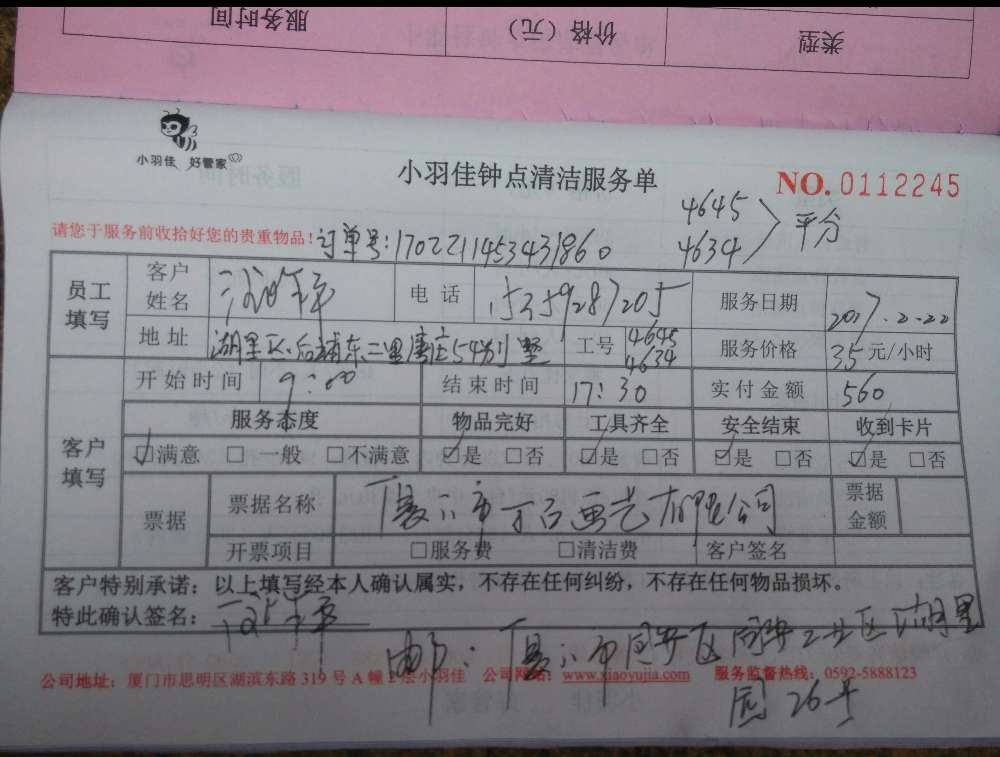 服务时间 价格（元） 类型
小羽佳 好管家
小羽佳钟点清洁服务单 NO.0112245
4645
4634 平分
请您于服务前收拾好您的贵重物品！订单号:1702211453431860
员工填写 客户姓名 电话 15359287205 服务日期 2017.2.22
地址 湖里区后埔东二里唐庄54别墅 工号 4645 4634 服务价格 35元/小时
开始时间 9:00 结束时间 17:30 实付金额 560
客户填写 服务态度 物品完好 工具齐全 安全结束 收到卡片
☑满意 □一般 □不满意 ☑是 □否 ☑是 □否 ☑是 □否 ☑是 □否
票据 票据名称 厦门市 画艺有限公司 票据金额
开票项目 □服务费 □清洁费 客户签名
客户特别承诺：以上填写经本人确认属实，不存在任何纠纷，不存在任何物品损坏。
特此确认签名：
邮：厦门市同安区同安工业区湖里
园26号
公司地址：厦门市思明区湖滨东路319号A幢2层小羽佳 公司网站：www.xiaoyujia.com 服务监督热线：0592-5888123